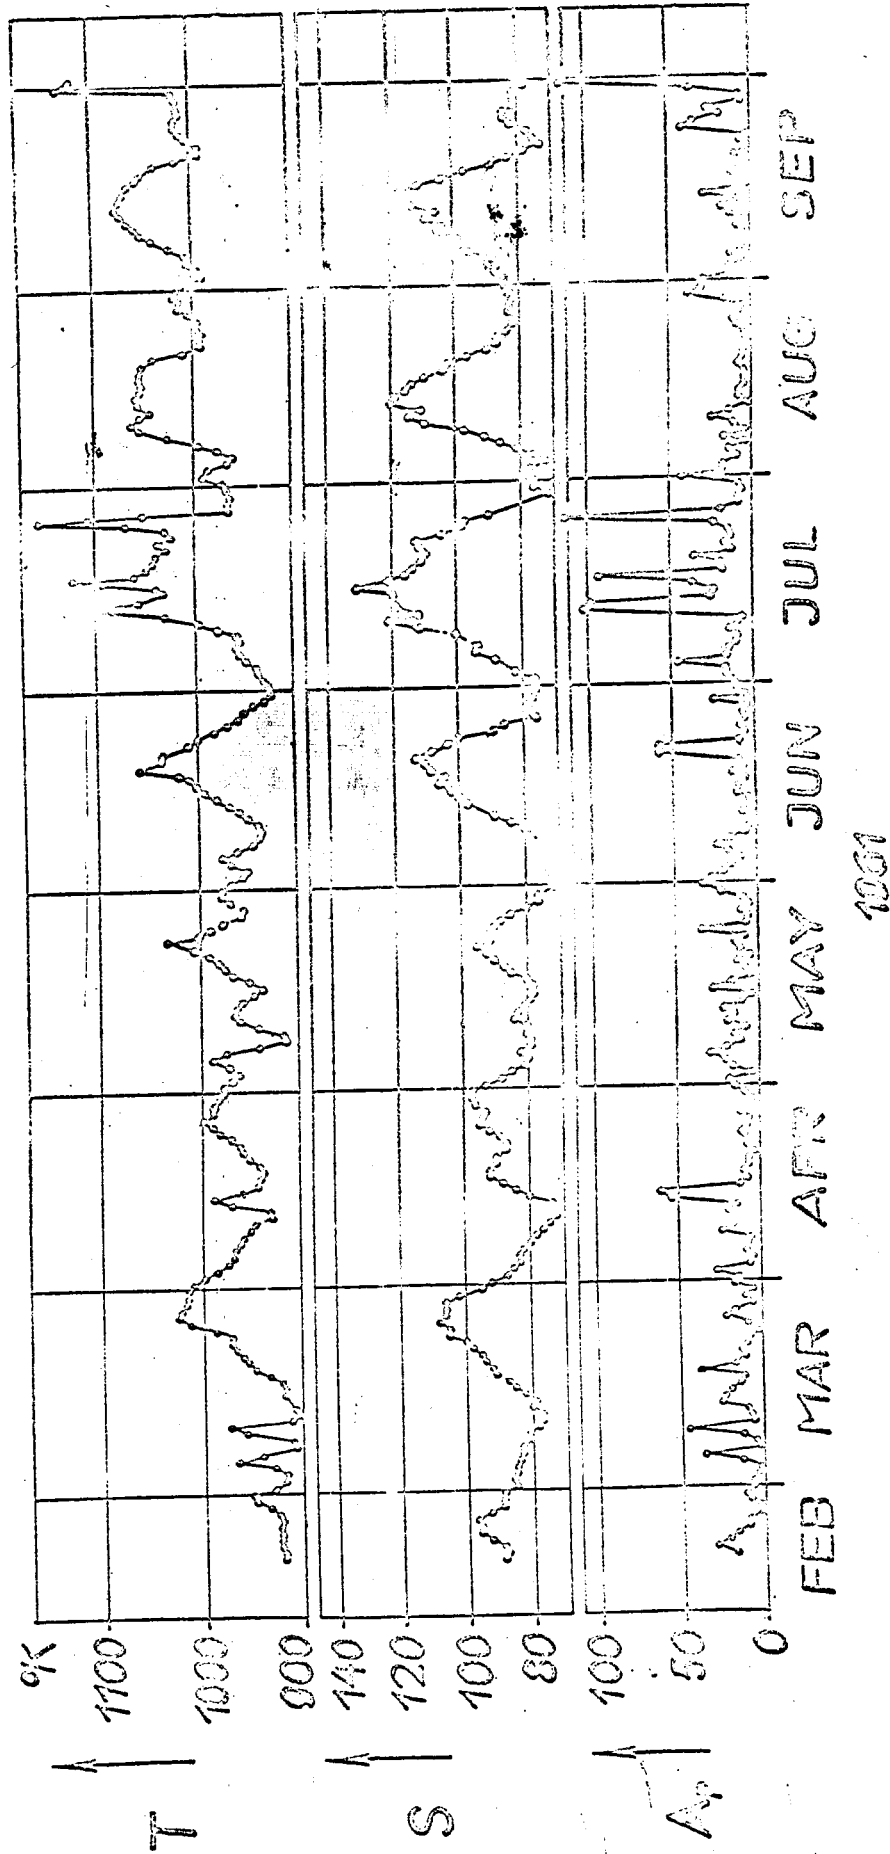 T
°K
1100
1000
900
S
140
120
100
80
Ap
100
50
0
FEB MAR APR MAY JUN JUL AUG SEP
1961